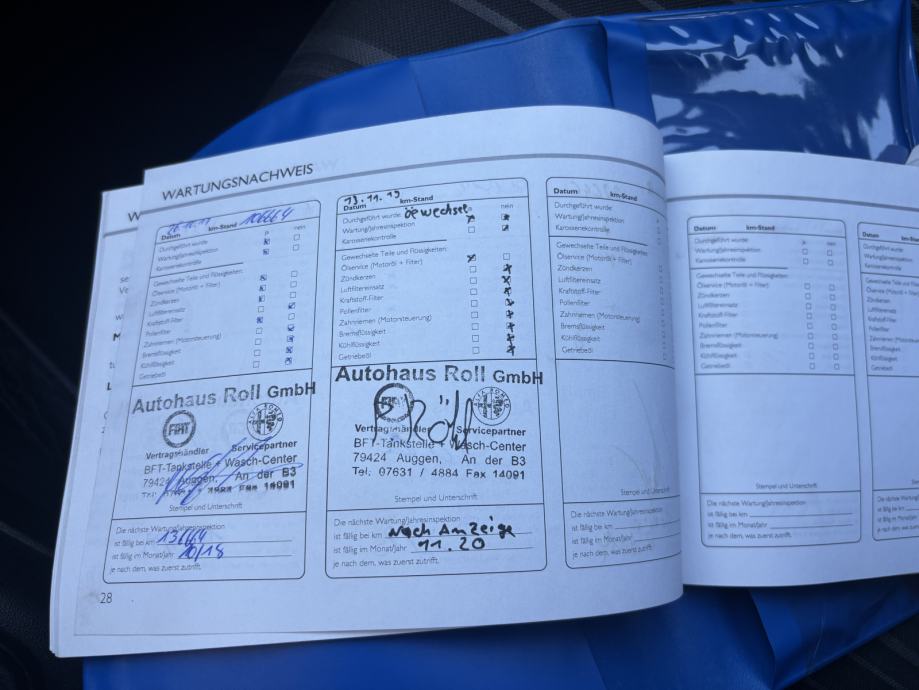 WARTUNGSNACHWEIS
Datum km-Stand 106664
nein
Durchgeführt wurde:
Wartung/Jahresinspektion
Karosseriekontrolle
Gewechselte Teile und Flüssigkeiten:
Ölservice (Motoröl + Filter)
Zündkerzen
Luftfiltereinsatz
Kraftstoff-Filter
Pollenfilter
Zahnriemen (Motorsteuerung)
Bremsflüssigkeit
Kühlflüssigkeit
Getriebeöl
Autohaus Roll GmbH
FIAT
ALFA ROMEO
Vertragshändler Servicepartner
BFT-Tankstelle + Wasch-Center
79424 Auggen, An der B3
4884 Fax 14091
Stempel und Unterschrift
Die nächste Wartung/Jahresinspektion
ist fällig bei km
ist fällig im Monat/Jahr 10/18
je nach dem, was zuerst zutrifft.
28
13.11.19
Datum km-Stand
Durchgeführt wurde: nein
Wartung/Jahresinspektion
Karosseriekontrolle
Gewechselte Teile und Flüssigkeiten:
Ölservice (Motoröl + Filter)
Zündkerzen
Luftfiltereinsatz
Kraftstoff-Filter
Pollenfilter
Zahnriemen (Motorsteuerung)
Bremsflüssigkeit
Kühlflüssigkeit
Getriebeöl
Autohaus Roll GmbH
FIAT
ALFA ROMEO
Vertragshändler Servicepartner
BFT-Tankstelle + Wasch-Center
79424 Auggen, An der B3
Tel: 07631 / 4884 Fax 14091
Stempel und Unterschrift
Die nächste Wartung/Jahresinspektion
ist fällig bei km nach Anzeige
ist fällig im Monat/Jahr 11.20
je nach dem, was zuerst zutrifft.
Datum km-Stand
Durchgeführt wurde:
Wartung/Jahresinspektion
Karosseriekontrolle
Gewechselte Teile und Flüssigkeiten:
Ölservice (Motoröl + Filter)
Zündkerzen
Luftfiltereinsatz
Kraftstoff-Filter
Pollenfilter
Zahnriemen (Motorsteuerung)
Bremsflüssigkeit
Kühlflüssigkeit
Getriebeöl
Stempel und Unterschrift
Die nächste Wartung/Jahresinspektion
ist fällig bei km
ist fällig im Monat/Jahr
je nach dem, was zuerst zutrifft.
Datum km-Stand
Durchgeführt wurde: nein
Wartung/Jahresinspektion
Karosseriekontrolle
Gewechselte Teile und Flüssigkeiten:
Ölservice (Motoröl + Filter)
Zündkerzen
Luftfiltereinsatz
Kraftstoff-Filter
Pollenfilter
Zahnriemen (Motorsteuerung)
Bremsflüssigkeit
Kühlflüssigkeit
Getriebeöl
Stempel und Unterschrift
Die nächste Wartung/Jahresinspektion
ist fällig bei km
ist fällig im Monat/Jahr
je nach dem, was zuerst zutrifft.
Datum